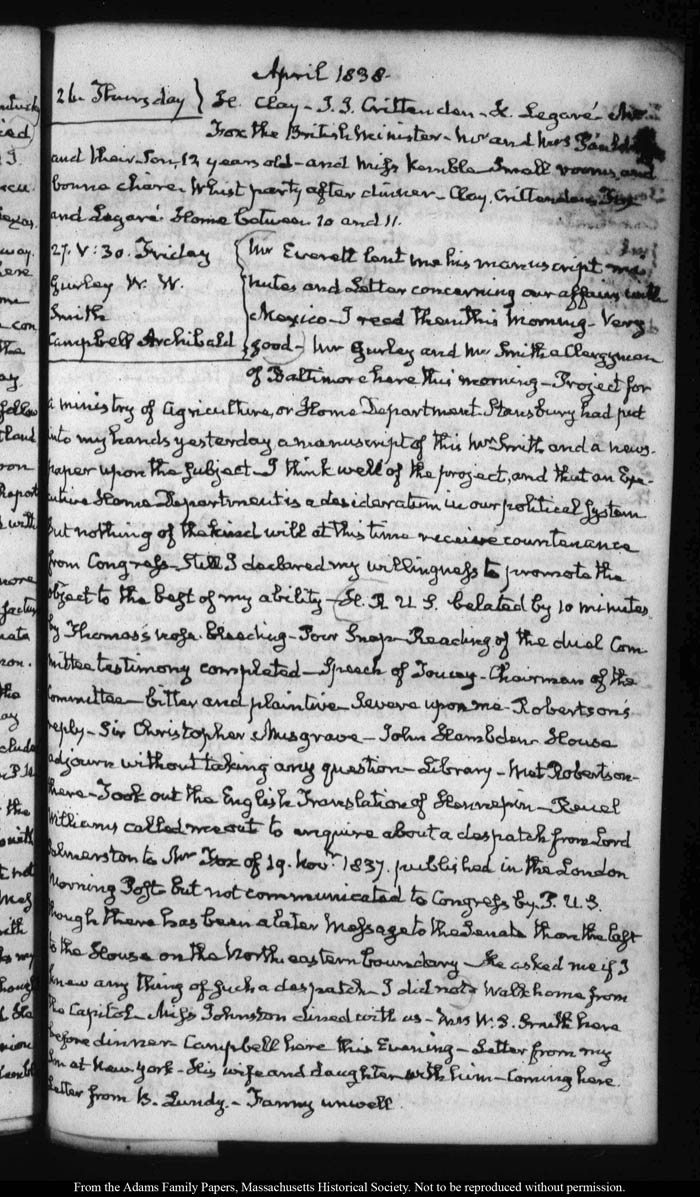 April 1838.
26. Thursday } H. Clay – J. J. Crittenden – H. Legaré – Mr
Fox the British Minister – Mr and Mrs
and their Son, 12 years old – and Miss Kemble – Small rooms, and
bonne chère. Whist party after dinner – Clay, Crittenden, Fox
and Legaré. Home between 10 and 11.
27. V:30. Friday { Mr Everett lent me his manuscript mi-
Gurley W. W. nutes and Letter concerning our affairs with
Smith Mexico – I read them this morning – Very
Campbell Archibald good – Mr Gurley and Mr Smith a Clergyman
of Baltimore here this morning – Project for
a ministry of agriculture, or Home Department. Stansbury had put
into my hands yesterday a manuscript of this Mr Smith and a news-
paper upon the subject – I think well of the project, and that an Exe-
cutive Home Department is a desideratum in our political System
but nothing of the kind will at this time receive countenance
from Congress – Still I declared my willingness to promote the
object to the best of my ability – H. R. U. S. belated by 10 minutes
by Thomas's nose bleeding – Pour Snap – Reading of the duel Com-
mittee testimony completed – Speech of Toucey – Chairman of the
Committee – bitter and plaintive – Severe upon me – Robertson's
reply – Sir Christopher Musgrave – John Hambden – House
adjourn without taking any question – Library – Met Robertson
there – Took out the English Translation of Hennepin – Reuel
Williams called me out to enquire about a despatch from Lord
Palmerston to Mr Fox of 19. Novr 1837. published in the London
Morning Post but not communicated to Congress by P. U. S.
though there has been a later Message to the Senate than the last
to the House on the North eastern boundary – He asked me if I
knew any thing of such a despatch – I did not – Walk home from
the Capitol – Miss Johnston dined with us – Mrs W. S. Smith here
before dinner – Campbell here this Evening – Letter from my
Son at New York – His wife and daughter with him – Coming here
Letter from B. Lundy. – Fanny unwell.
From the Adams Family Papers, Massachusetts Historical Society. Not to be reproduced without permission.